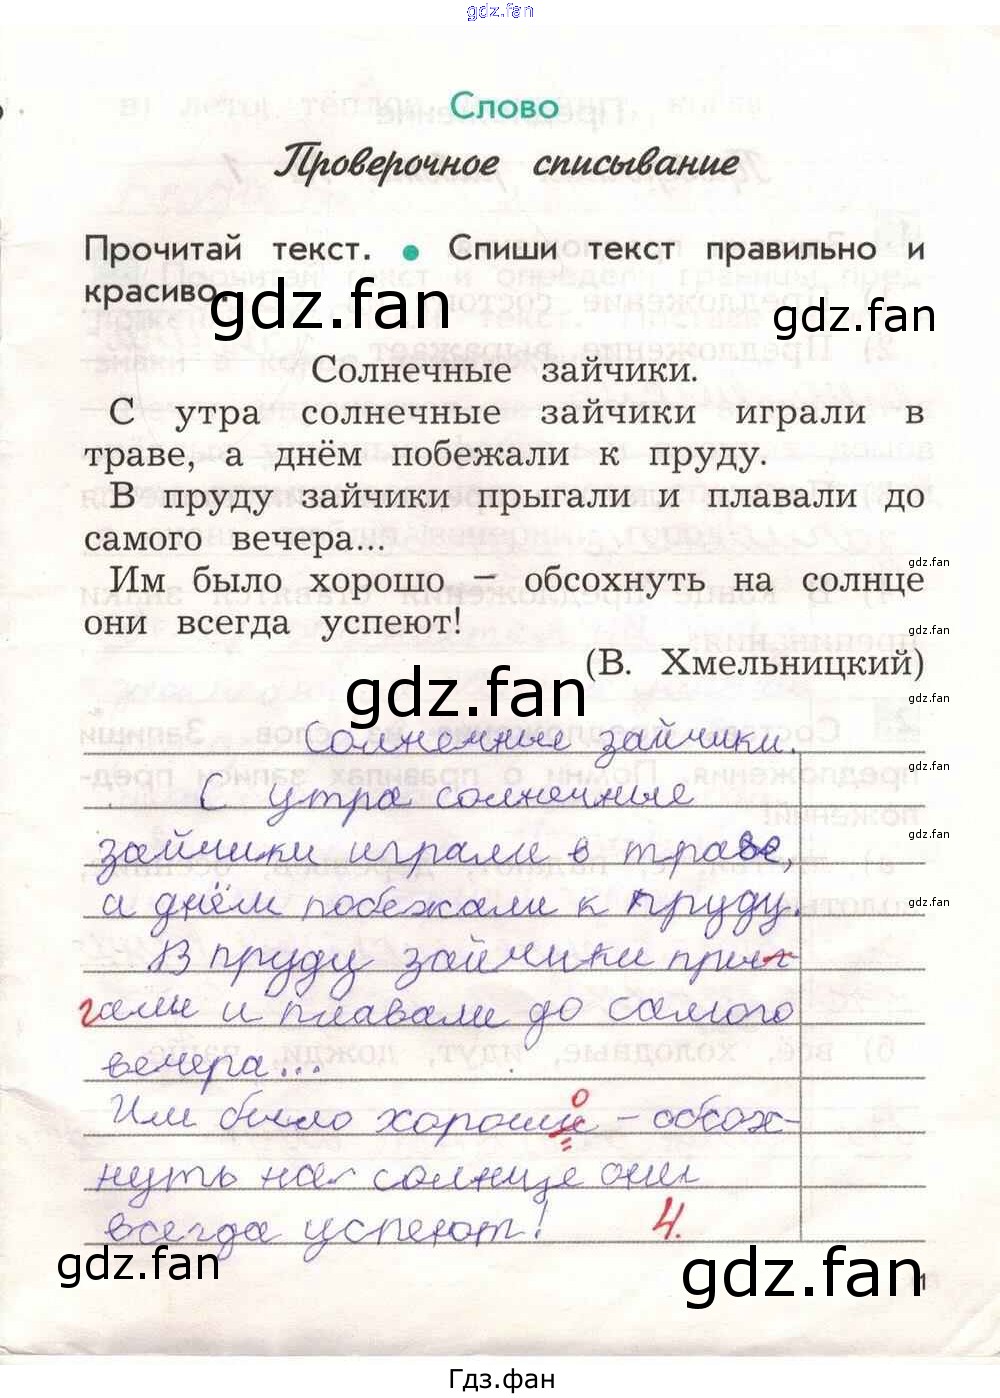 gdz.fan
Слово
Проверочное списывание
Прочитай текст. • Спиши текст правильно и
красиво.
gdz.fan
gdz.fan
Солнечные зайчики.
С утра солнечные зайчики играли в
траве, а днём побежали к пруду.
В пруду зайчики прыгали и плавали до
самого вечера...
gdz.fan
Им было хорошо – обсохнуть на солнце
они всегда успеют!
gdz.fan
(В. Хмельницкий)
gdz.fan
gdz.fan
Солнечные зайчики.
gdz.fan
С утра солнечные
gdz.fan
зайчики играли в траве,
а днём побежали к пруду.
gdz.fan
В пруду зайчики пры-
гали и плавали до самого
вечера...
о
Им было хороши – обсох-
нуть на солнце они
всегда успеют!
4.
gdz.fan
gdz.fan
11
Гдз.фан